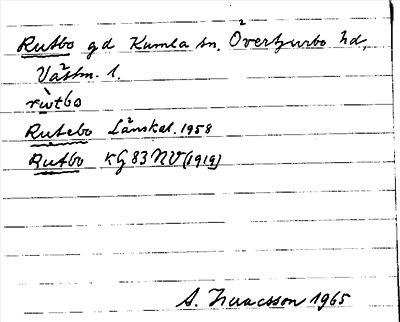 Rutbo gd Kumla sn, Övertjurbo hd,
Västm. l.
rùtbo
Rutebo Länskal. 1958
Rutbo KG 83 NV (1919)
A. Isaacsson 1965